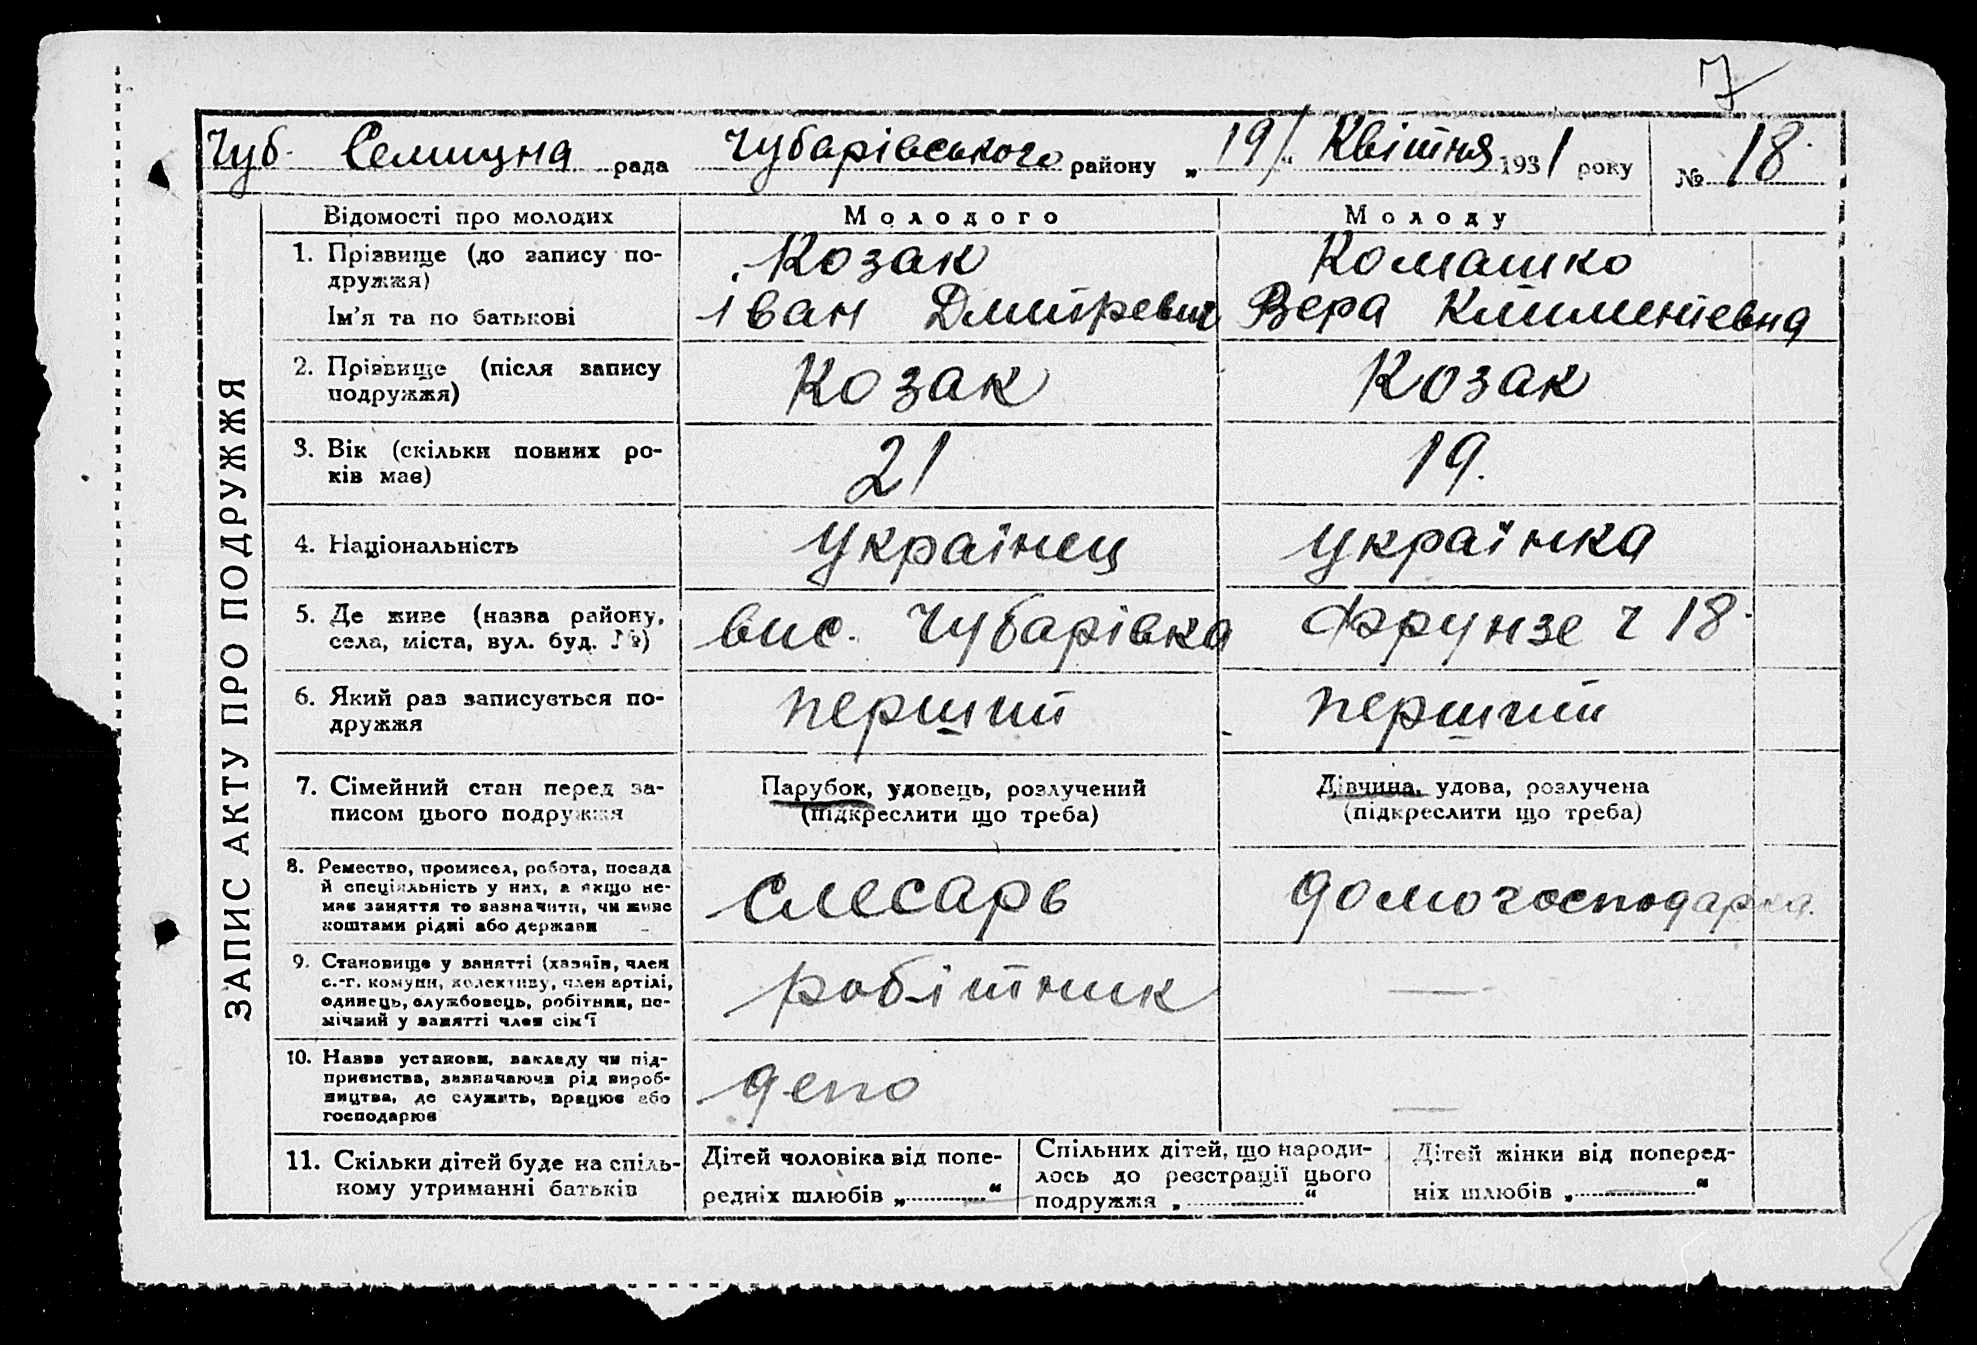 7
Чуб. Селищна рада Чубарівського району „ 19 “ Квітня 1931 року № 18.
ЗАПИС АКТУ ПРО ПОДРУЖЖЯ
Відомості про молодих
Молодого
Молоду
1. Прізвище (до запису по-
дружжя)
Ім'я та по батькові
Козак
Іван Дмитревич
Комашко
Вера Климентевна
2. Прізвище (після запису
подружжя)
Козак
Козак
3. Вік (скільки повних ро-
ків має)
21
19.
4. Національність
Українец
Українка
5. Де живе (назва району,
села, міста, вул. буд. №)
вис. Чубарівка
Фрунзе ч 18.
6. Який раз записується по-
дружжя
перший
перший
7. Сімейний стан перед за-
писом цього подружжя
Парубок, удовець, розлучений
(підкреслити що треба)
Дівчина, удова, розлучена
(підкреслити що треба)
8. Ремество, промисел, робота, посада
й спеціяльність у них, а якщо не-
має заняття то зазначити, чи живе
коштами рідні або держави
слесарь
домогосподарка.
9. Становище у занятті (хазяїн, член
с.-г. комуни, колективу, член артілі,
одинець, службовець, робітник, по-
мічний у занятті член сім'ї
робітник
—
10. Назва установи, закладу чи під-
приємства, зазначаючи рід вироб-
ництва, де служить, працює або
господарює
депо
—
11. Скільки дітей буде на спіль-
кому утриманні батьків
Дітей чоловіка від попе-
редніх шлюбів „..........“
Спільних дітей, що народи-
лось до реєстрації цього
подружжя „..........“
Дітей жінки від поперед-
ніх шлюбів „..........“